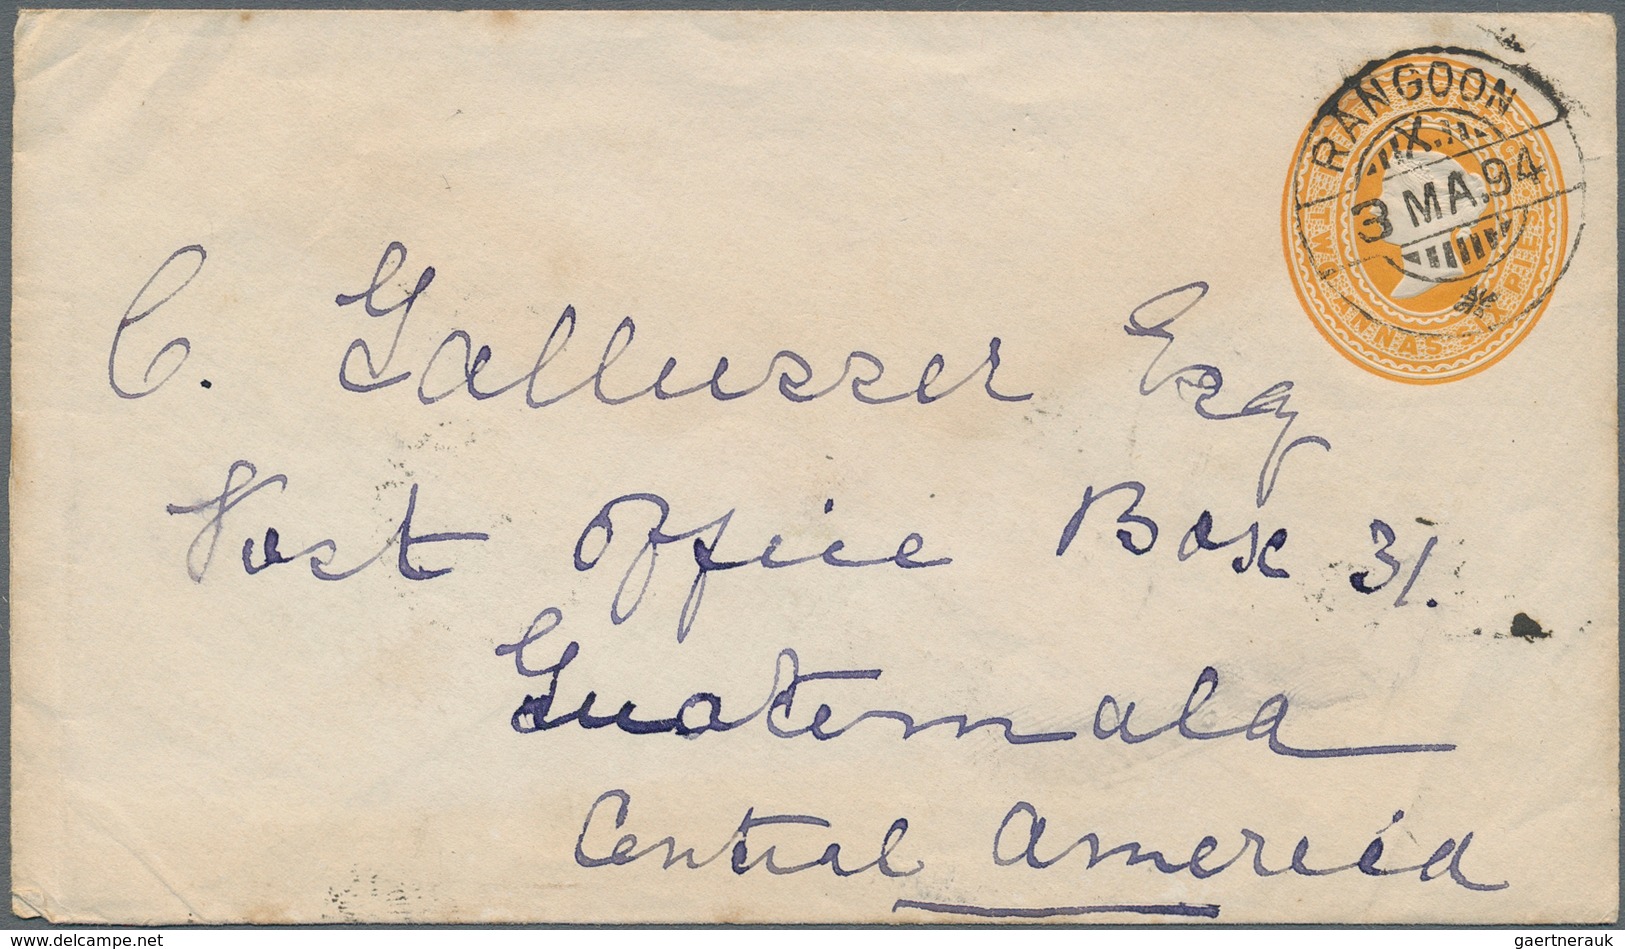 RANGOON
X.
3 MA.94
TWO ANNAS SIX PIES
C. Gallusser Esq
Post Office Box 31.
Guatemala
Central America
www.delcampe.net
gaertnerauk